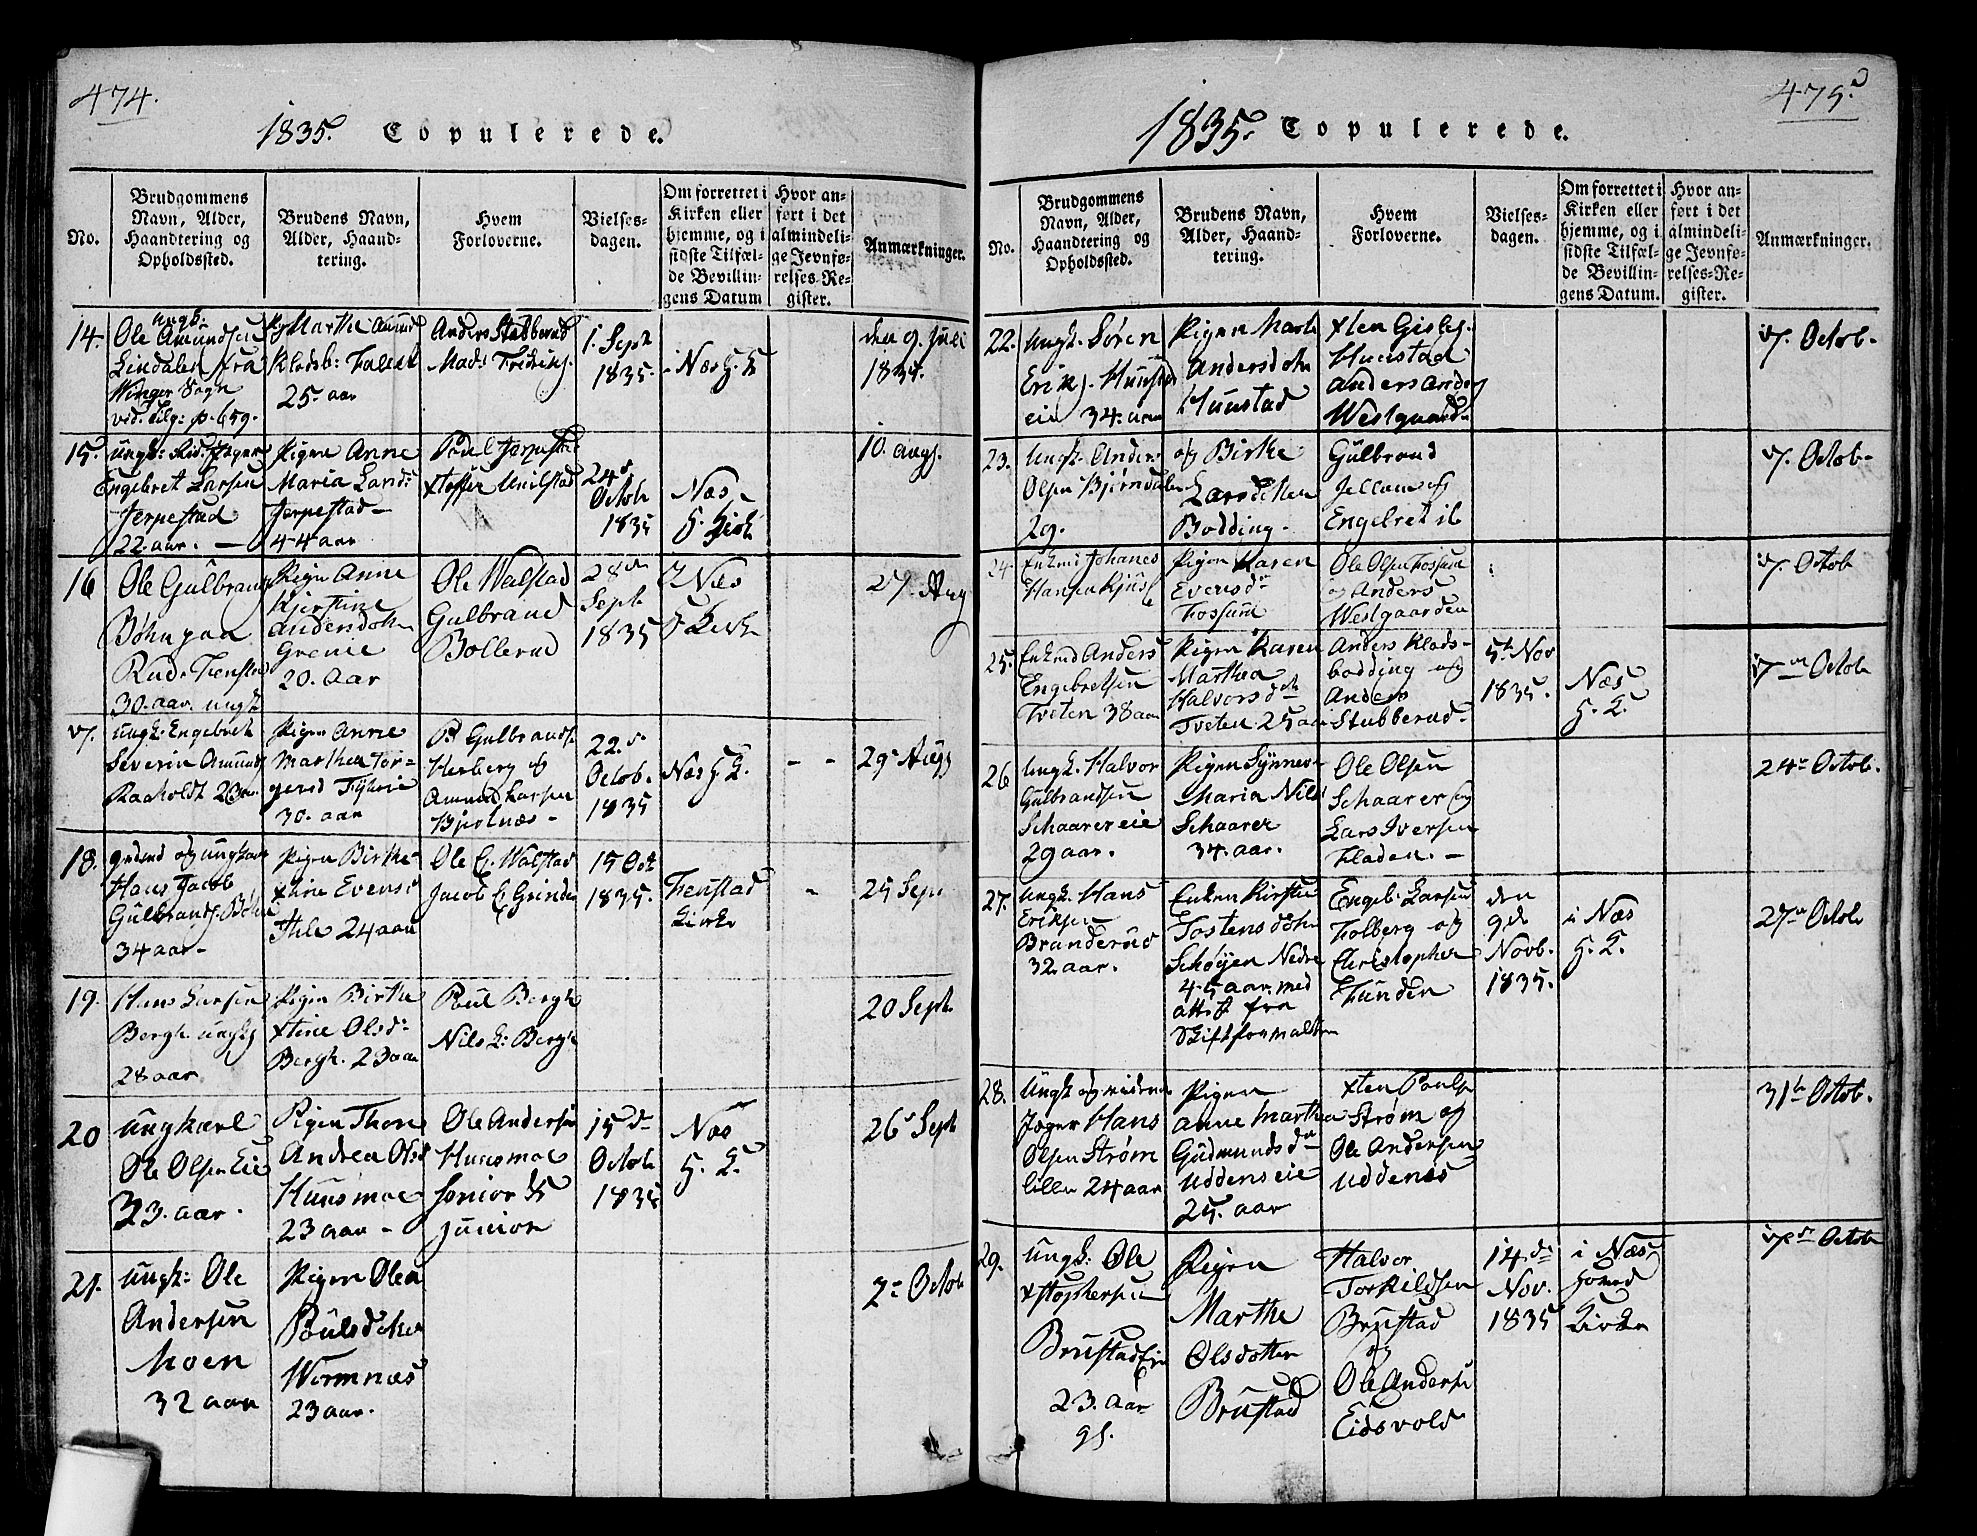 474.
1835. Copulerede.
No.
Brudgommens
Navn, Alder,
Haandtering og
Opholdssted.
Brudens Navn,
Alder, Haand-
tering.
Hvem
Forloverne.
Vielses-
dagen.
Om forrettet i
Kirken eller
hjemme, og i
sidste Tilfæl-
de Bevillin-
gens Datum
Hvor an-
ført i det
almindeli-
ge Jevnfø-
relses-Re-
gister.
Anmærkninger.
14.
Ungk:
Ole Amundsen
Lindalen fra
Winger Sogn
vid. Tilg: p. 659.
Marthe Amund
25 aar
Anders Stubberud
Mads
1. Sept
1835.
Næs H. K
den 9. Juli
15.
Engebret Larsen
Jerpestad
22 aar. —
Pigen Anne
Maria Lars:
Jerpestad —
44 aar
Poul Jerpestad
24
Octob
1835
Næs
H. Kirk
10. Aug.
16
Ole Gulbrand
30. aar. ungk
Pigen Anne
Kjerstine
Andersdotr
Grenie
20. Aar
Ole Walstad
Gulbrand
Bollerud
28de
Sept
1835
Næs
H Kirk
27. Aug
17.
Ungk: Engebret
Severin Amund
Raaholdt
Pigen Anne
Marthea Tor-
30. aar
P. Gulbrands
Herberg og
Amund Larsen
Bjertnæs -
22. d
Octob.
1835
Næs H K.
- -
29 Aug
18.
Hans Jacob
Gulbrands. Bøhn
34 aar -
Pigen Birthe
xtine Evens
Ihle 24 aar
Ole E. Walstad
Jacob E Grinder
15 Oct
1835.
Fenstad
Kirke
-
25 Sept
19.
Hans Larsen
Bergh ungk
28 aar
Pigen Birthe
xtine Olsd:
Bergh. 23 aar
Poul Bergh
Nils L: Bergh
20 Sept
20
Ungkarl
Ole Olsen Eie
33. aar.
Pigen Thore
Andrea Olsd
Huusmoe
23 aar -
Ole Andersen
Huusmoe
senior &
junior
15 d
Octob
1835
Næs
H. K.
26 Sept
21.
Ungk: Ole
Andersen
Moen
32 aar
Pigen Olea
Poulsdotter
Wormnæs
23 aar.
2 Octob
475.
1835. Copulerede.
No.
Brudgommens
Navn, Alder,
Haandtering og
Opholdssted.
Brudens Navn,
Alder, Haand-
tering.
Hvem
Forloverne.
Vielses-
dagen.
Om forrettet i
Kirken eller
hjemme, og i
sidste Tilfæl-
de Bevillin-
gens Datum.
Hvor an-
ført i det
almindeli-
ge Jevnfø-
relses-Re-
gister.
Anmærkninger.
22.
Ungk. Søren
Erik. Huustad
eie 34. aar
Pigen Marte
Andersdotr
Huustad
Huustad
Anders Anders
Westgaard
7. Octob.
23.
Ungk. Anders
Olsen Bjørndalen
29.
og Birthe
Larsdotter
Bodding.
Gulbrand
Engebret
7. Octob.
24
Enkmd Johanes
Hansen
Pigen Karen
Evensd
Fossum
Ole Olsen Fossum
og Anders
Westgaarden
7. Octob
25.
Enkmd Anders
Engebretsen
Tveten 38 aar
Pigen Karen
Marthea
Halvorsd
Tveten. 25 aar
Anders Klods-
bodding og
Anders
Stubberud.
5t Nov
1835.
Næs
H. K.
7 Octob
26
Ungk. Halvor
Gulbrandsen
Schaarer eie
29 aar.
Pigen Synnev
Maria Nils
Schaarer
34. aar.
Ole Olsen
Schaarer og
Lars Iversen
Fladen. -
24 Octob.
27.
Ungk. Hans
Eriksen
Branderud
32 aar.
Enken Kirstie
Tostensdotr
Schøyen Nedre
45 aar. med
attest fra
Skifteforvalteren
Engeb: Larsen
Folberg og
Christopher
Funden
den
9de
Novb.
1835.
i Næs
H. K.
27 Octob
28.
Jæger Hans
Olsen Strøm
24 aar
Pigen
Anne Marthea
Gudmundsd
Uddenseie
25. aar
xten Pouls
Strøm og
Ole Andersen
Uddenæs
31te Octob.
29.
Ungk: Ole
xstophersen
Brustad Eie
23. Aar
Pigen
Marthe
Olsdotter
Brustad
Halvor
Torkildsen
Brustad
og
Ole Anders
Eidsvold
14. d
Nov.
1835
i Næs
Hoved
Kirke
Octob